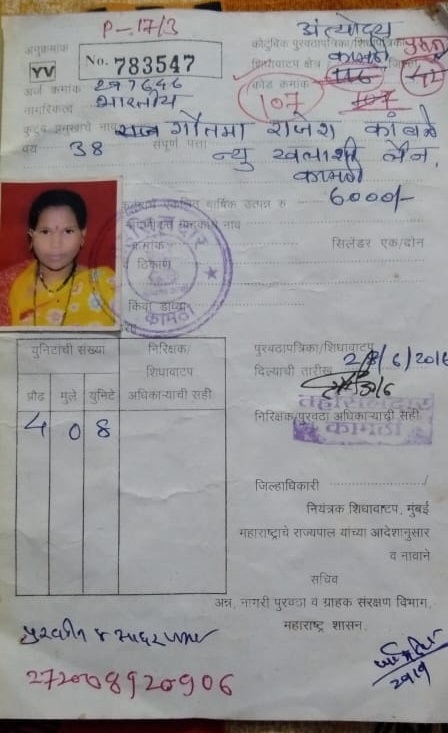 P-17/3
अंत्योदय
अनुक्रमांक
YV
No. 783547
कौटुंबिक पुरवठापत्रिका/शिधापत्रिका
शिधावाटप क्षेत्र कामठी
अर्ज क्रमांक 297646
कोड क्रमांक
107
107
नागरिकत्व भारतीय
कुटुंब प्रमुखाचे नाव गौतमा राजेश कांबळे
वय 38 संपूर्ण पत्ता न्यु खलाशी लैन,
कामठी
वार्षिक उत्पन्न रु 6000/-
नाव
क्रमांक
सिलेंडर एक/दोन
ठिकाण
कामठी
युनिटांची संख्या
निरिक्षक/
शिधावाटप
अधिकाऱ्याची सही
प्रौढ मुले युनिटे
4 0 8
पुरवठापत्रिका/शिधावाटप
दिल्याची तारीख
निरिक्षक/पुरवठा अधिकाऱ्याची सही
तहसिलदार
कामठी
जिल्हाधिकारी
नियंत्रक शिधावाटप, मुंबई
महाराष्ट्राचे राज्यपाल यांच्या आदेशानुसार
व नावाने
सचिव
अन्न, नागरी पुरवठा व ग्राहक संरक्षण विभाग,
महाराष्ट्र शासन.
272008920906